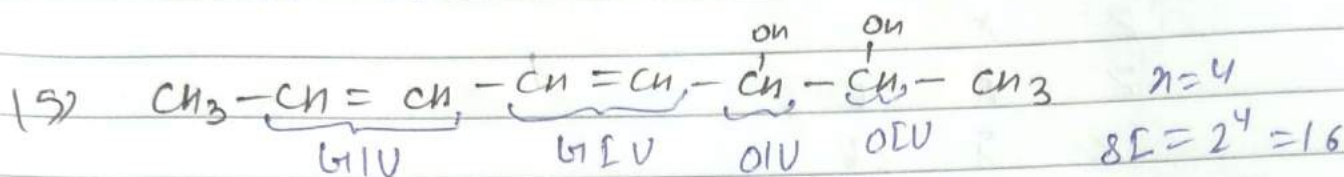 OH OH
(5) CH3-CH = CH -CH = CH - CH - CH - CH3 n=4
GIU GIU OIU OIU SI = 2^4 = 16